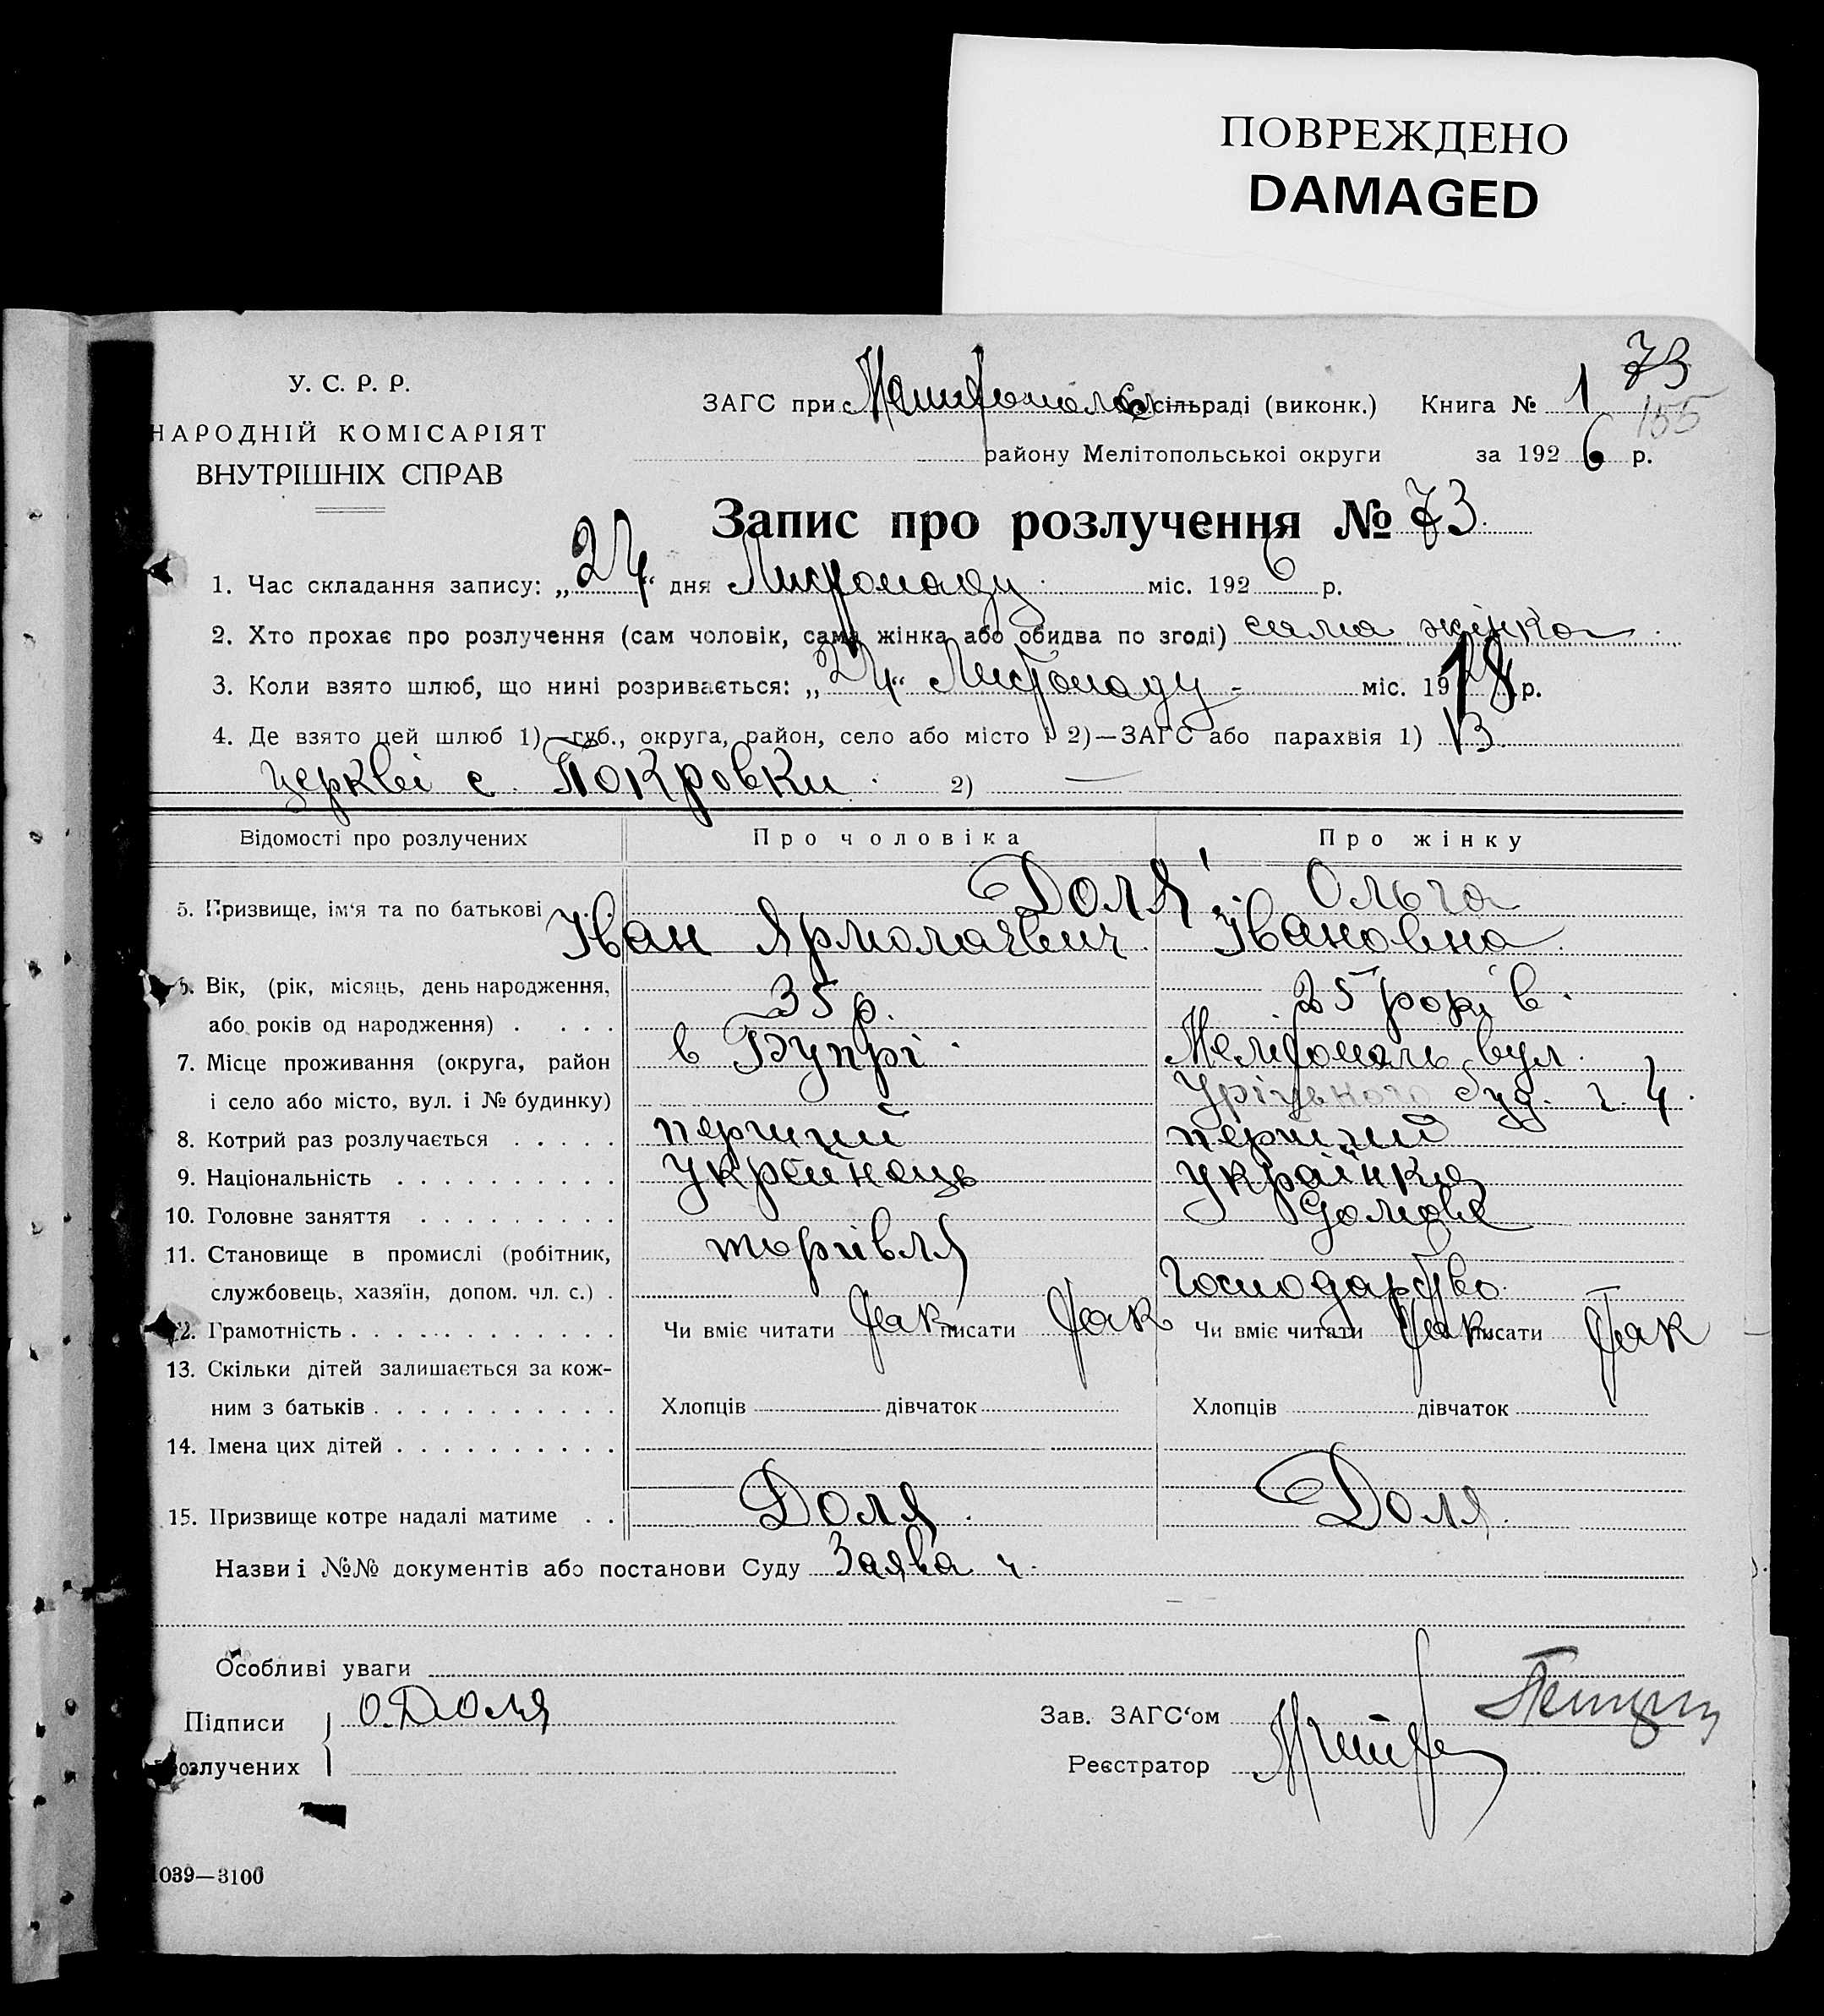 ПОВРЕЖДЕНО
DAMAGED
73
У. С. Р. Р.
НАРОДНІЙ КОМІСАРІЯТ
ВНУТРІШНІХ СПРАВ
ЗАГС при сільраді (виконк.) Книга № 1
155
району Мелітопольської округи за 1926 р.
Запис про розлучення № 73.
1. Час складання запису: „24“ дня Листопаду міс. 1926 р.
2. Хто прохає про розлучення (сам чоловік, сама жінка або обидва по згоді) сама жінка
3. Коли взято шлюб, що нині розривається: „24“ Листопаду - міс. 1918 р.
4. Де взято цей шлюб 1)—губ., округа, район, село або місто і 2)—ЗАГС або парахвія 1) В
церкві с. Покровки. 2) —
Відомості про розлучених Про чоловіка Про жінку
5. Призвище, ім'я та по батькові Доля Ольга
Іван Ярмолаєвич Івановна
6. Вік, (рік, місяць, день народження, 35 р. 25 років.
або років од народження) . . . .
7. Місце проживання (округа, район в Бупрі. Мелітополь вул.
і село або місто, вул. і № будинку) Уріцького буд. ч. 4.
8. Котрий раз розлучається . . . . . перший перший
9. Національність . . . . . . . . . . українець українка
10. Головне заняття . . . . . . . . . домове
11. Становище в промислі (робітник, торгівля
службовець, хазяїн, допом. чл. с.) . господарство.
12. Грамотність . . . . . . . . . . . . . Чи вміє читати так писати так Чи вміє читати так писати так
13. Скільки дітей залишається за кож-
ним з батьків . . . . . . . . . . . Хлопців дівчаток Хлопців дівчаток
14. Імена цих дітей . . . . . . . . . .
15. Призвище котре надалі матиме . . Доля. Доля.
Назви і №№ документів або постанови Суду Заява ч.
Особливі уваги
Підписи О. Доля Зав. ЗАГС'ом
розлучених Реєстратор
1039—3100